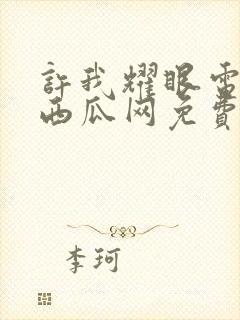 許我耀眼電
西瓜网免費
李珂